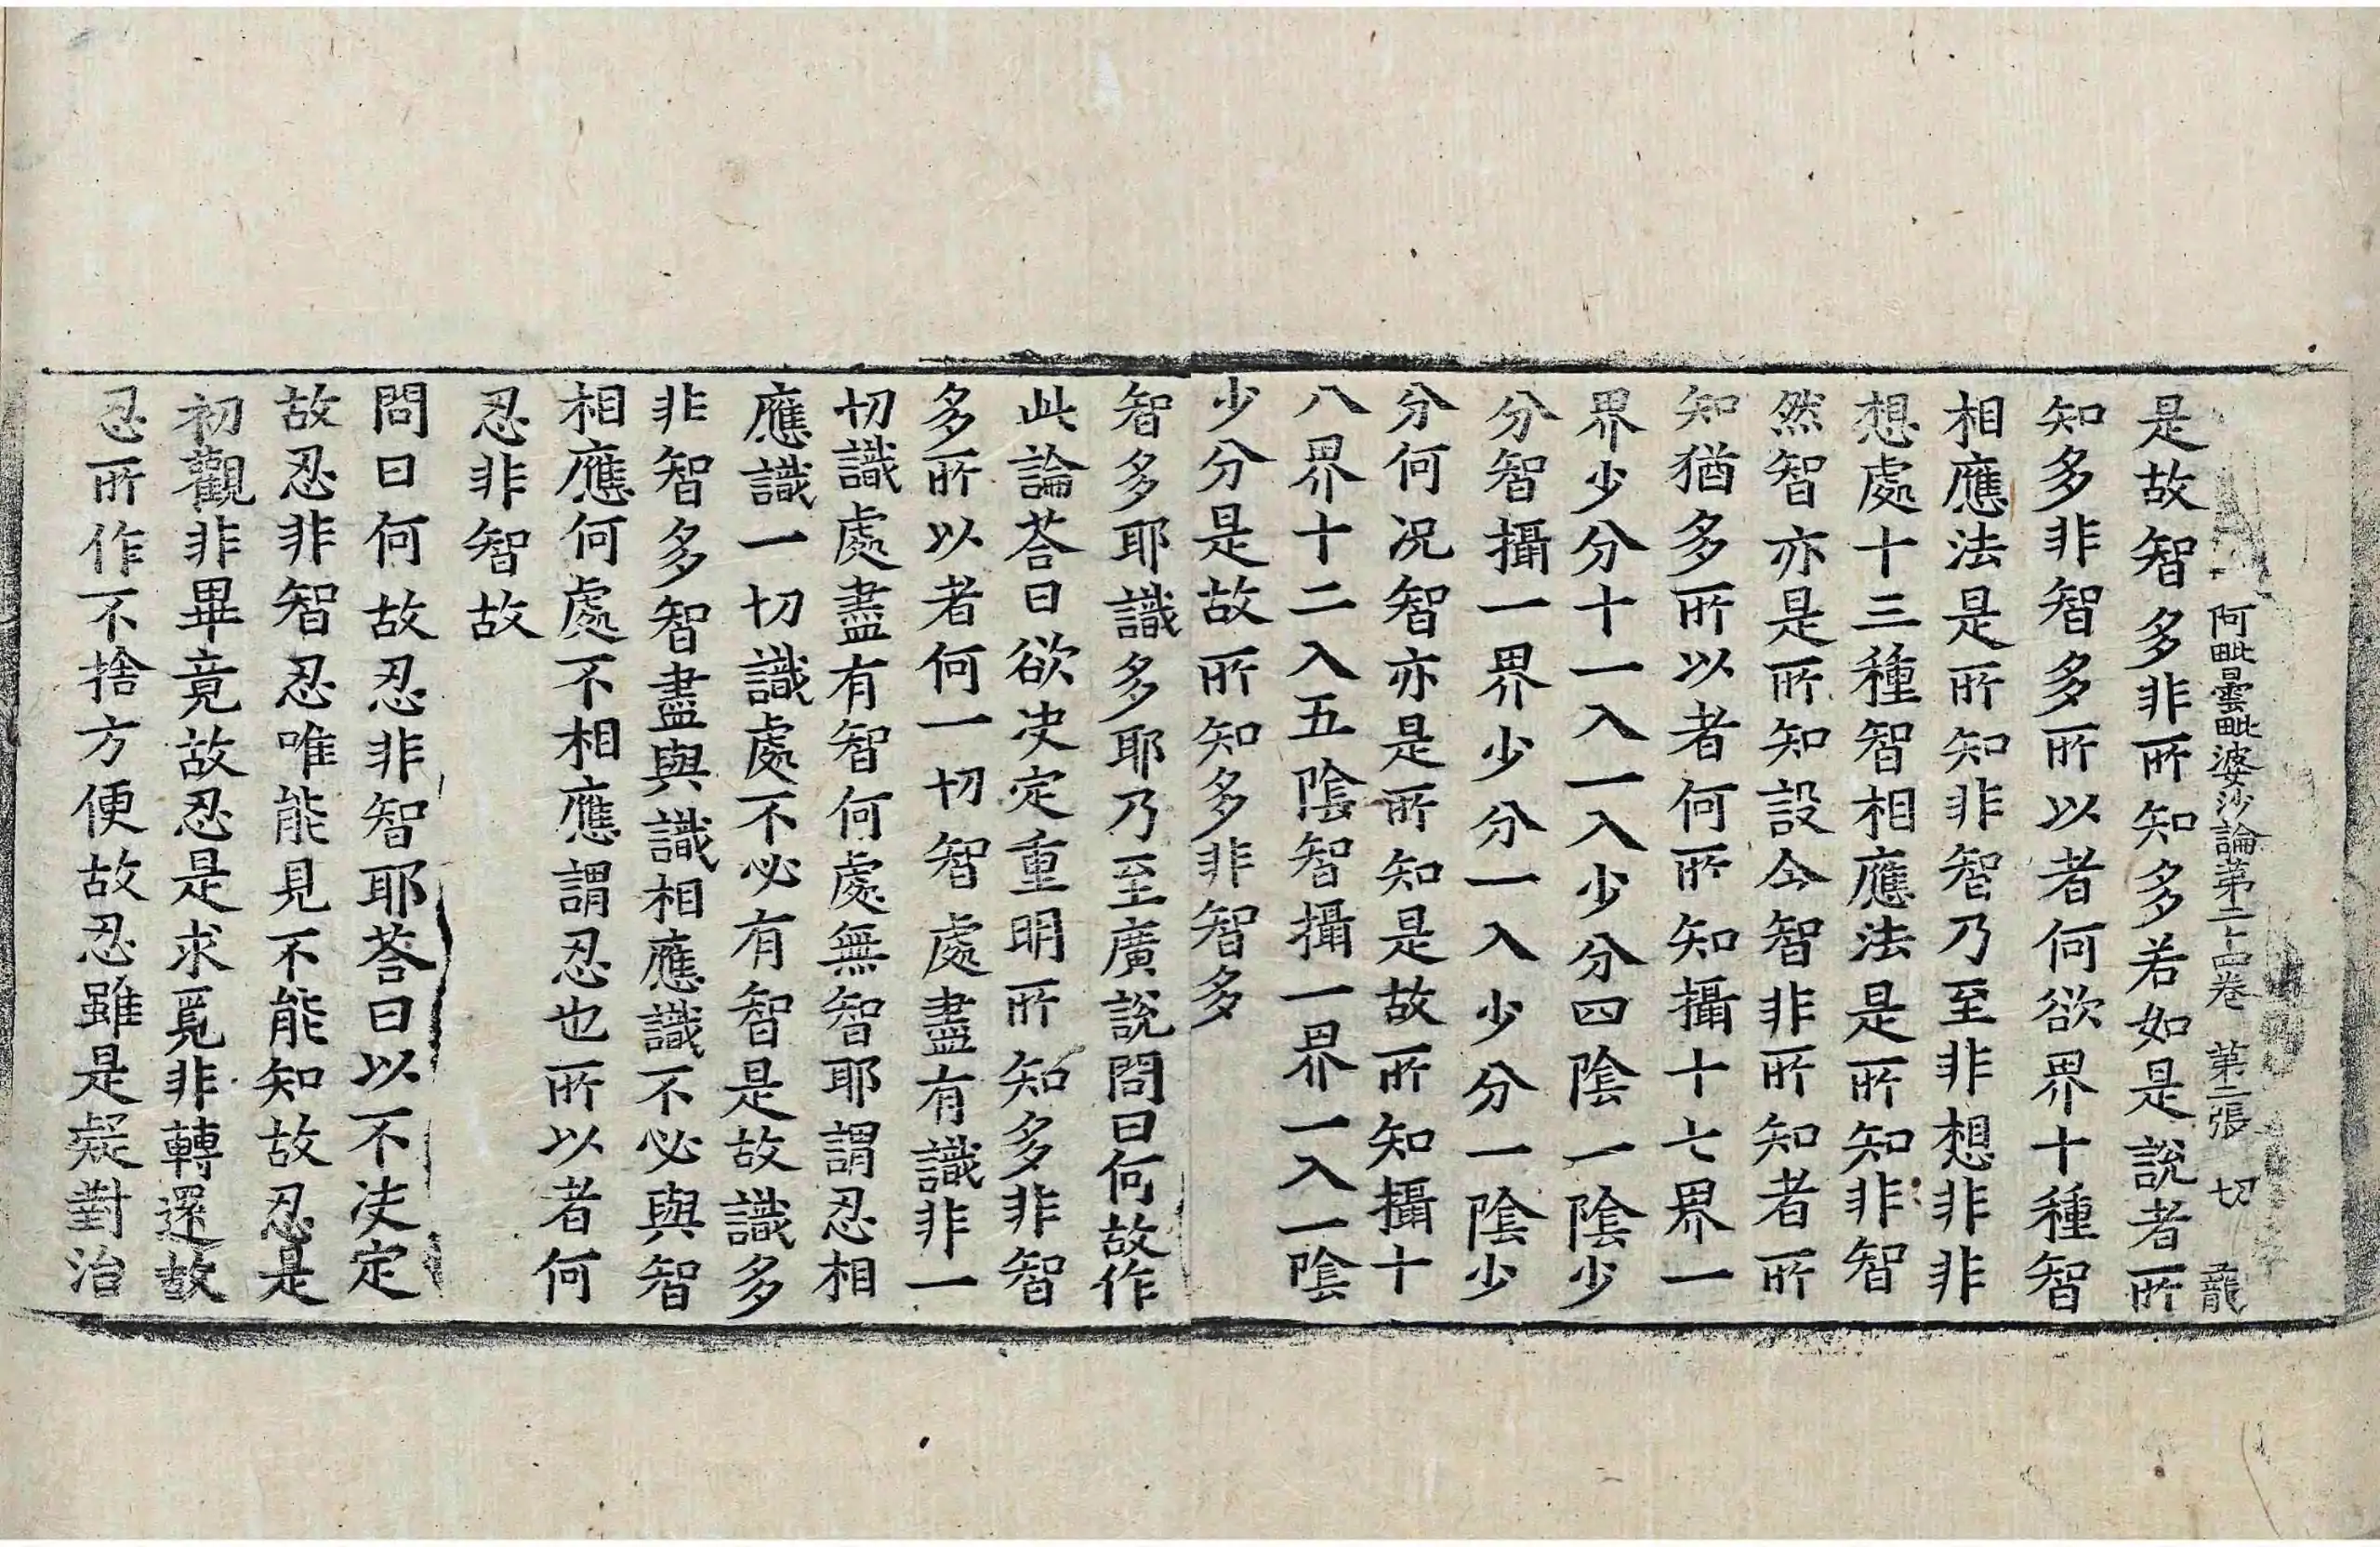 阿毗曇毗婆沙論第二十四卷 第二張 切 龍
是故智多非所知多若如是說者所
知多非智多所以者何欲界十種智
相應法是所知非智乃至非想非非
想處十三種智相應法是所知非智
然智亦是所知設令智非所知者所
知猶多所以者何所知攝十七界一
界少分十一入一入少分四陰一陰少
分智攝一界少分一入少分一陰少
分何况智亦是所知是故所知攝十
八界十二入五陰智攝一界一入一陰
少分是故所知多非智多
智多耶識多耶乃至廣說問曰何故作
此論荅曰欲决定重明所知多非智
多所以者何一切智處盡有識非一
切識處盡有智何處無智耶謂忍相
應識一切識處不必有智是故識多
非智多智盡與識相應識不必與智
相應何處不相應謂忍也所以者何
忍非智故
問曰何故忍非智耶荅曰以不决定
故忍非智忍唯能見不能知故忍是
初觀非畢竟故忍是求覓非轉還故
忍所作不捨方便故忍雖是疑對治